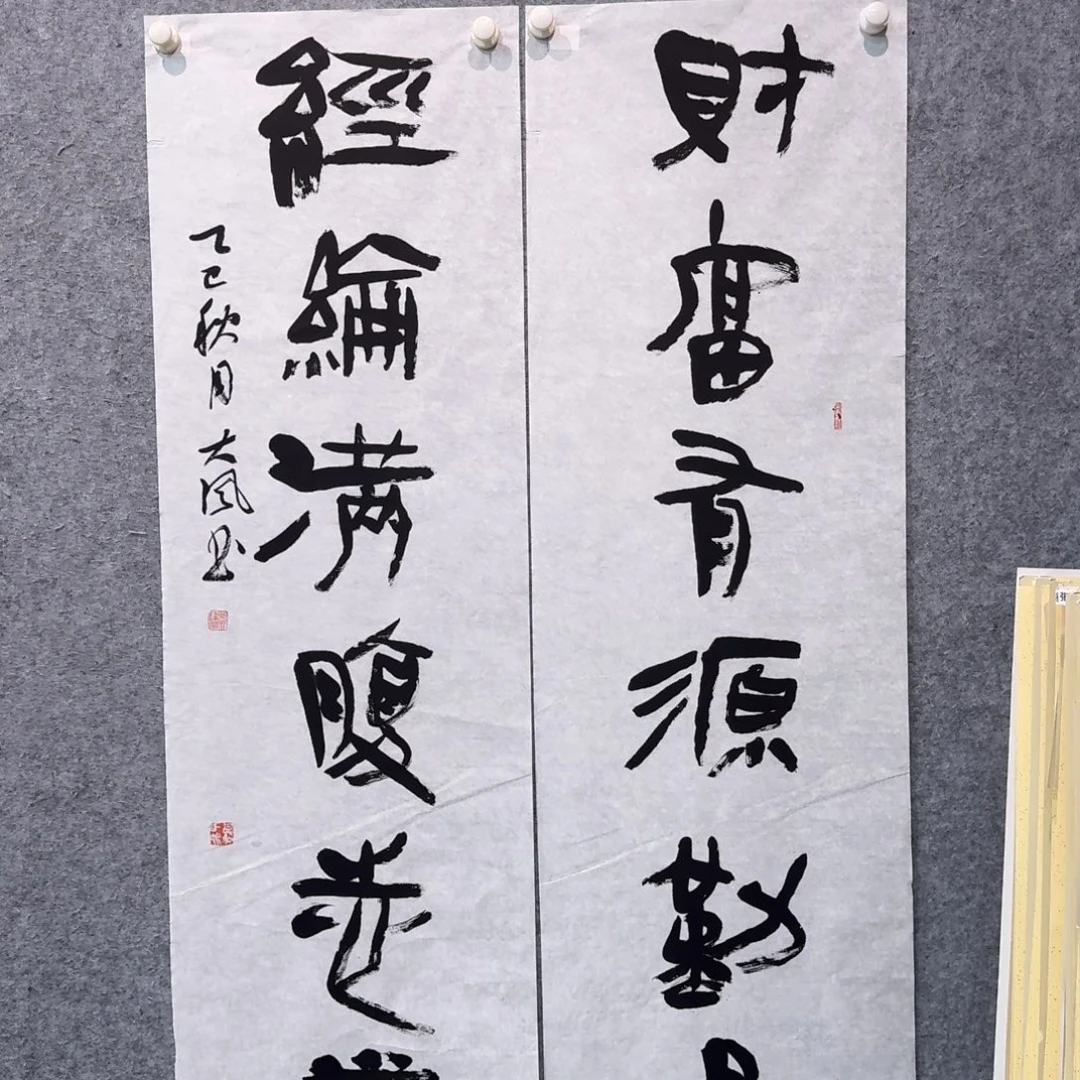 財富有源勤
經綸滿腹
乙巳秋月大風书